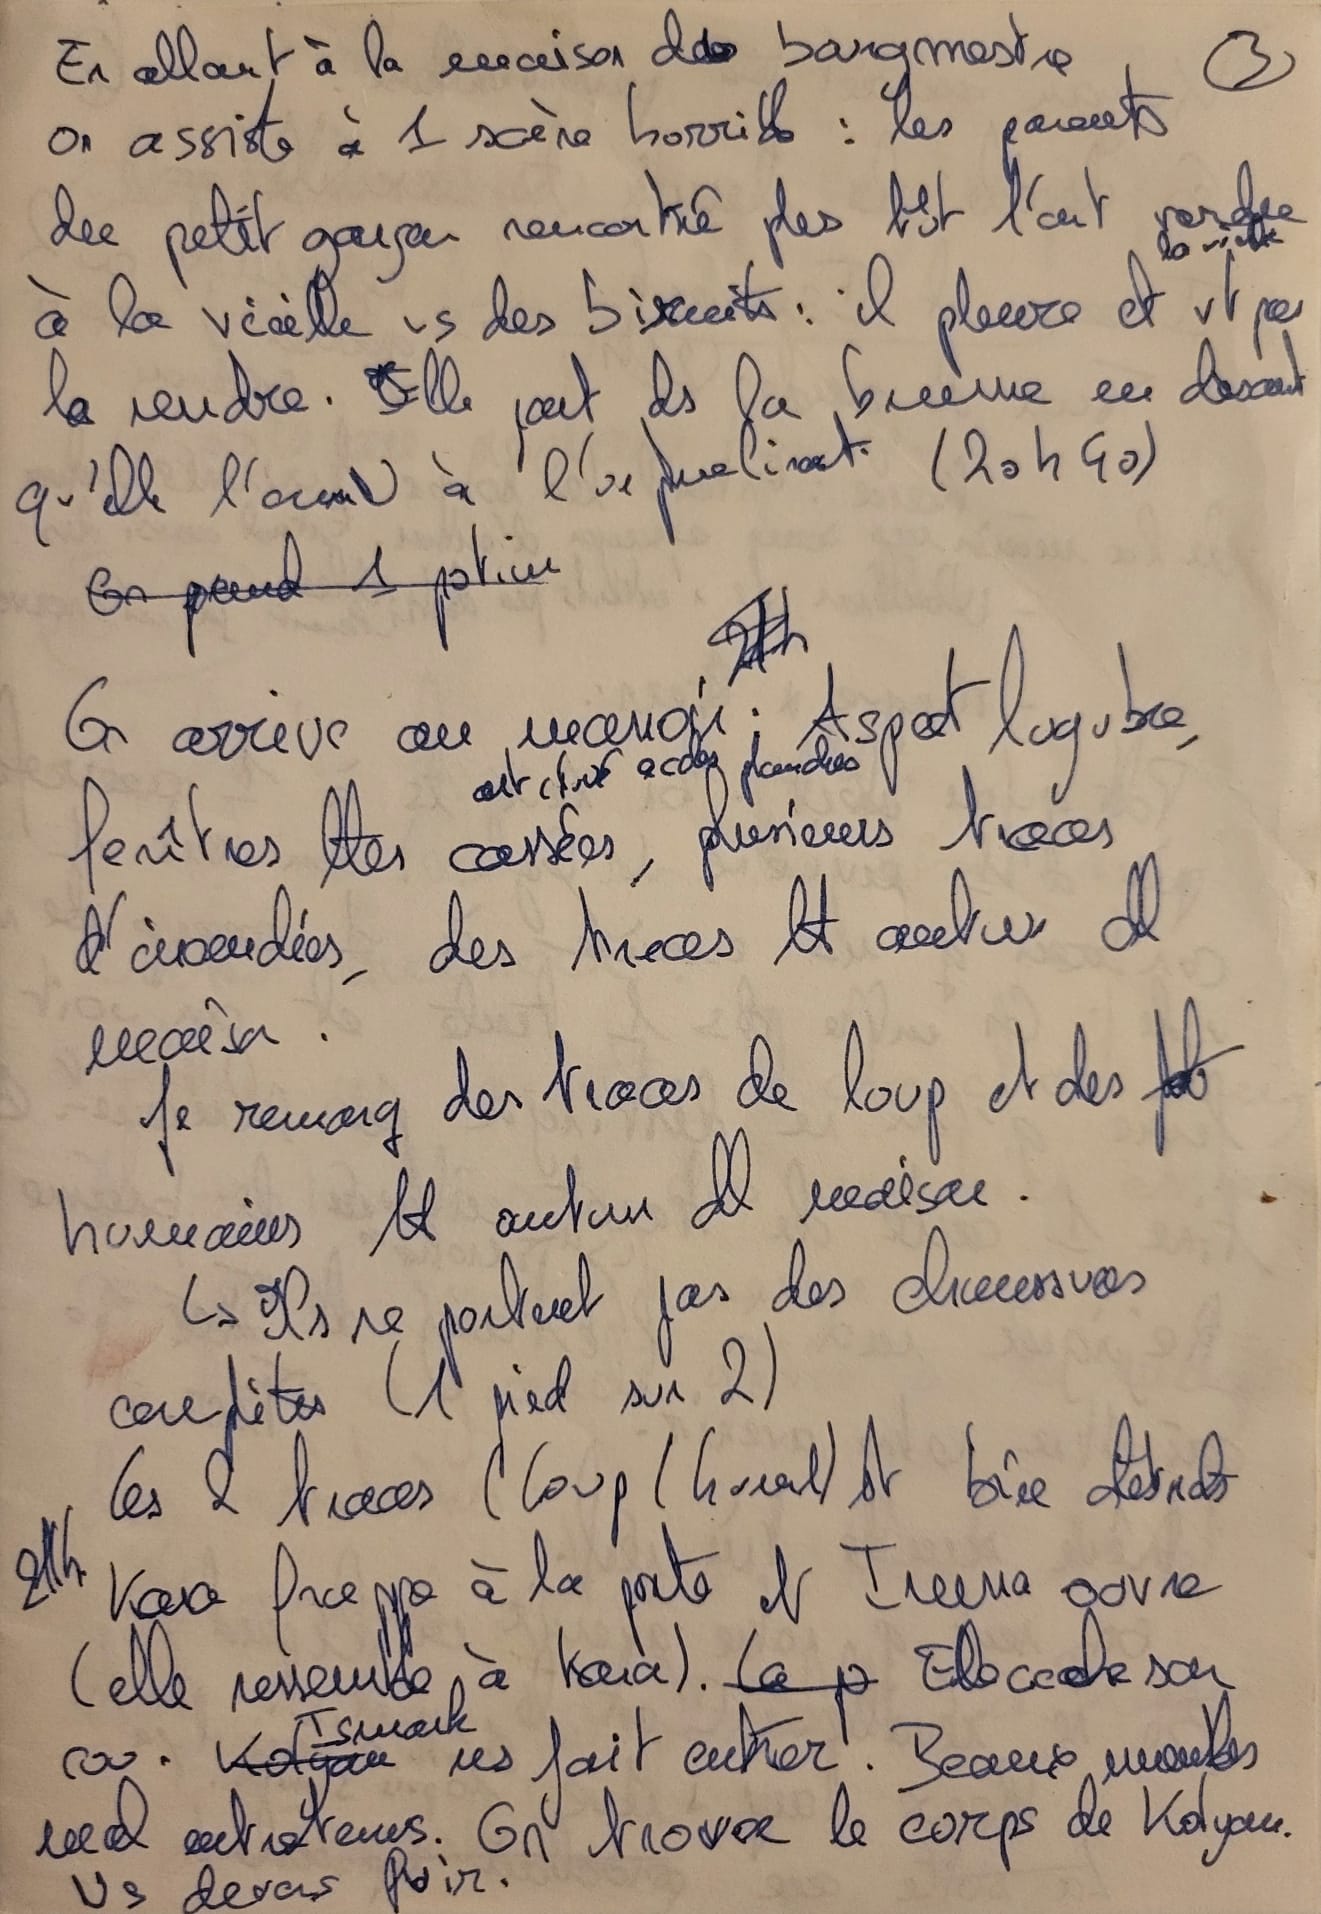 En allant à la maison du bourgmestre ③
on assiste à 1 scène horrible : les parents
du petit garçon rencontré plus tôt l'ont vendu
à la vieille vs des biscuits : il pleure et la vieille vt pas
la rendre. Elle part ds la brume en disant
qu'elle l'amène à l'orphelinat. (20h40)
On prend 1 potion
21h
On arrive au manoir : Aspect lugubre,
ont été clouées avec des planches
fenêtres ttes cassées, plusieurs traces
d'incendies, des traces tt autour dl
maison.
Je remarq des traces de loup et des
humaines tt autour dl maison.
↳ Ils ne portent pas des chaussures
complètes (1 pied sur 2)
Les 2 traces (loup / humain) st bien distinctes
21h Kara frappe à la porte et Ireena ouvre
(elle ressemble à Kara). La p Elle cache son
cou. Kolyan Ismark ns fait entrer. Beaux meubles
mal entretenus. On trouve le corps de Kolyan.
Vs devons fuir.